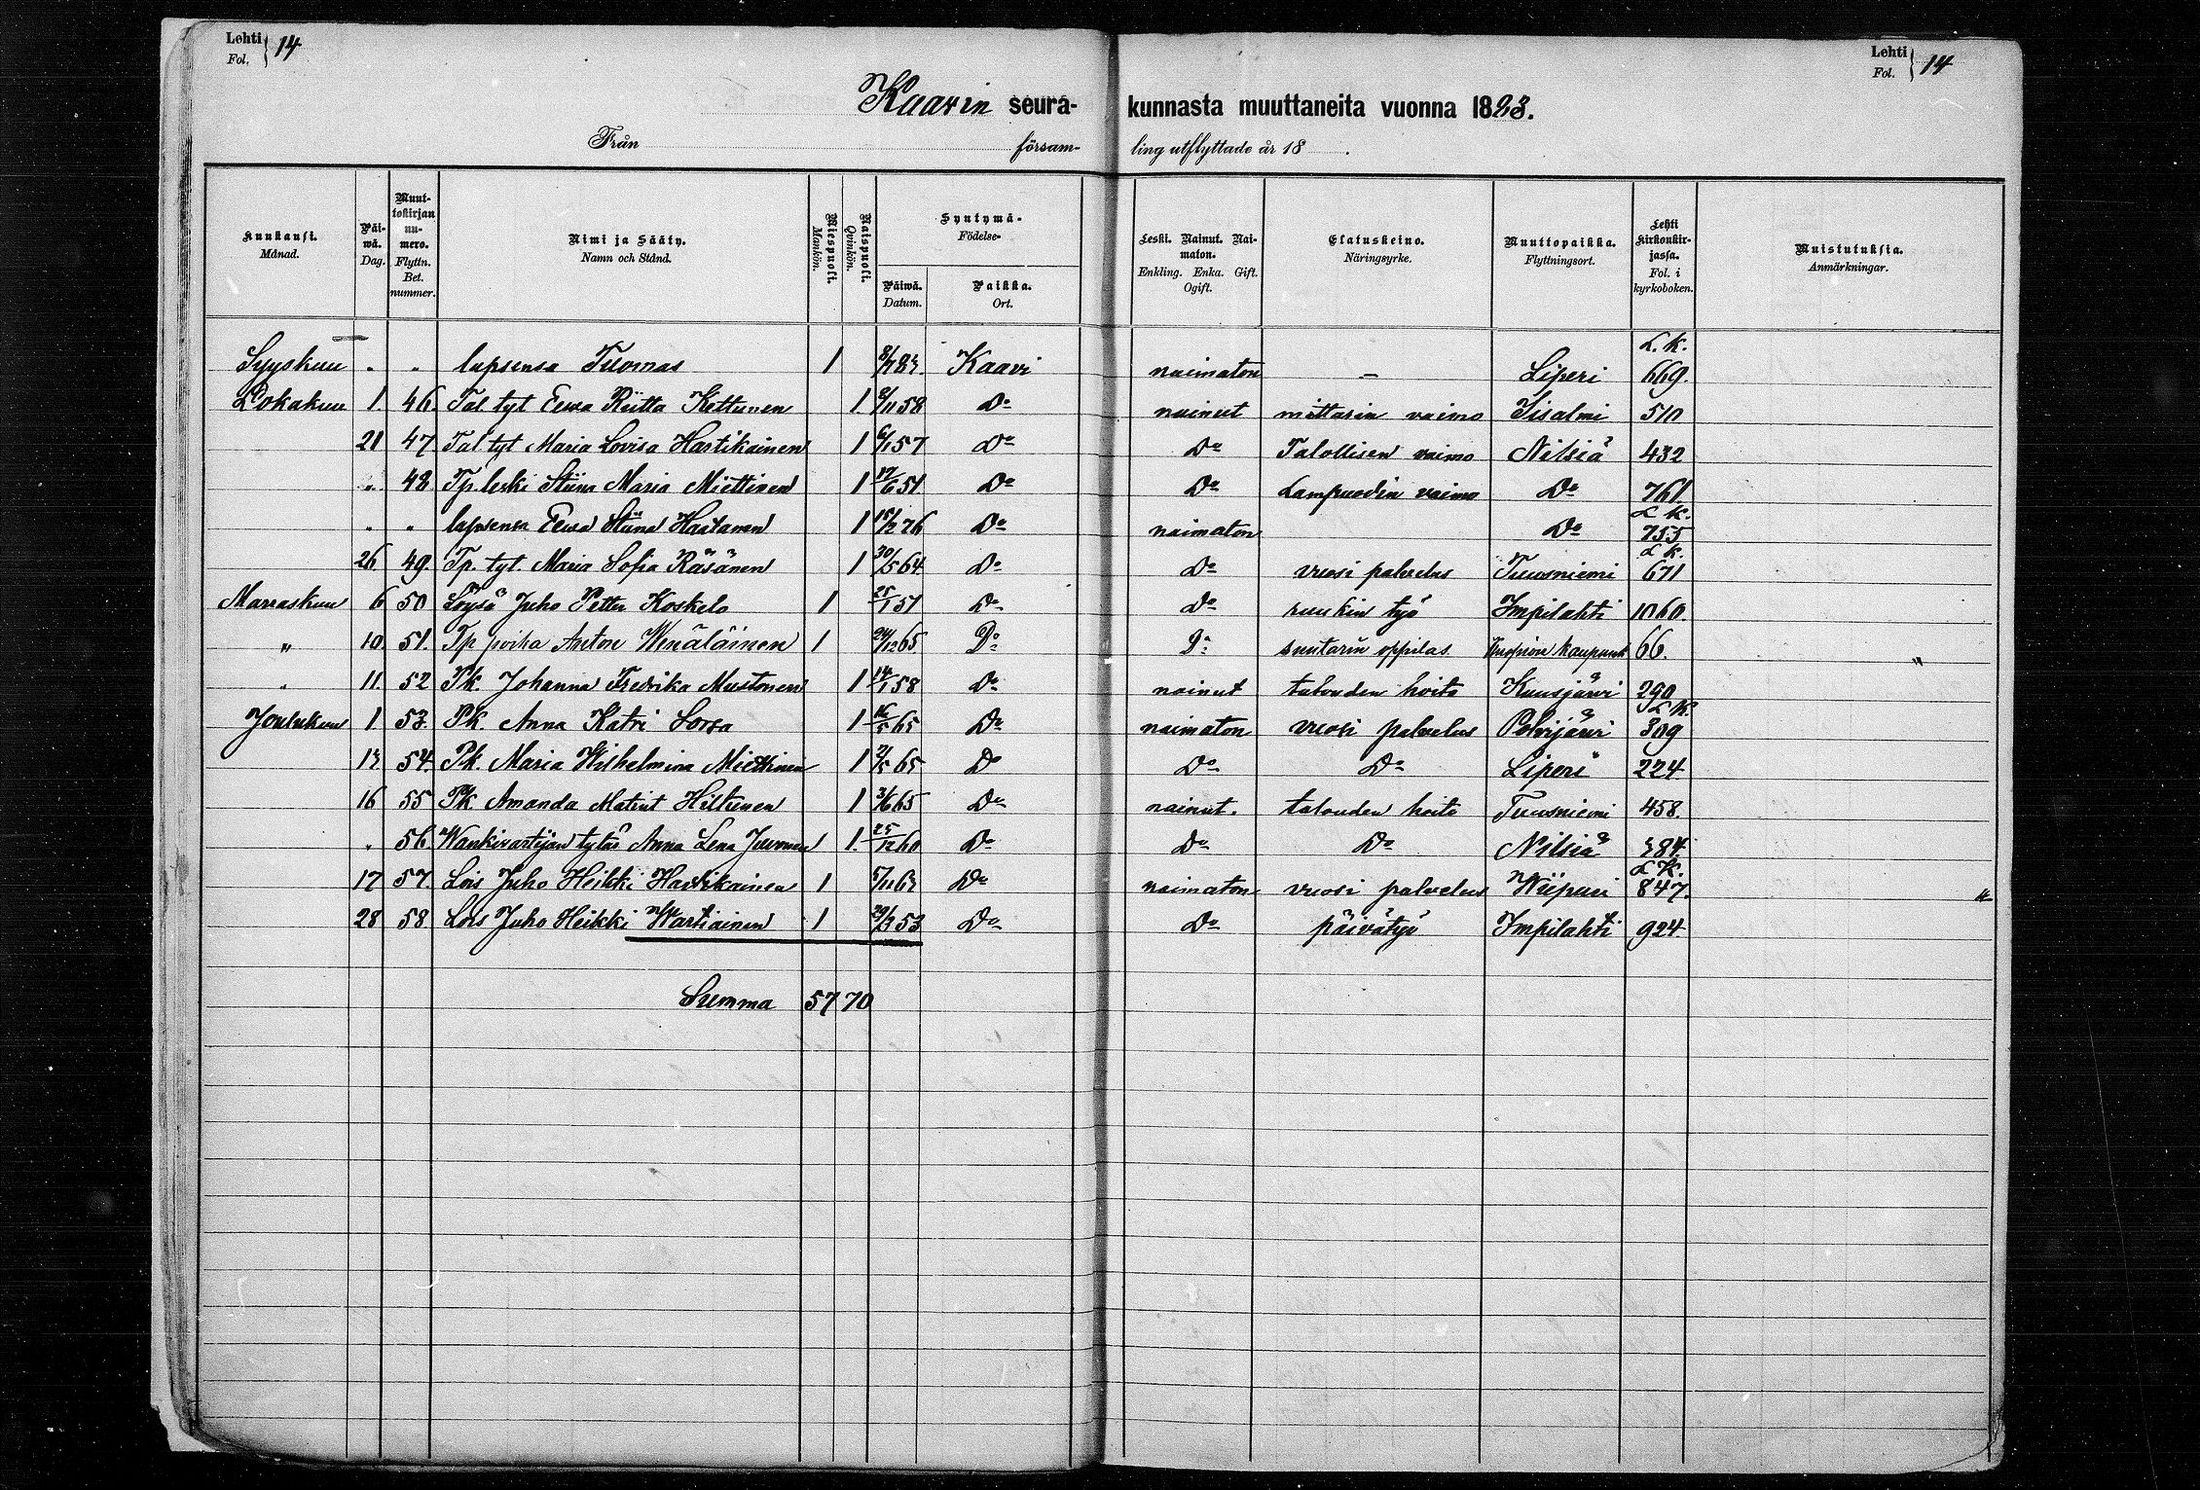 Lehti Fol. } 14
Lehti Fol. } 14
Kaavin seura- kunnasta muuttaneita vuonna 1883.
Från försam- ling utflyttade år 18 .
Kuukausi. Månad.
Päi-wä. Dag.
Muut-tokirjan nu-mero. Flyttn. Bet. nummer.
Nimi ja Sääty. Namn och Stånd.
Miespuoli. Mankön.
Naispuoli. Qvinkön.
Syntymä- Födelse-
Päiwä. Datum.
Paikka. Ort.
Leski. Nainut. Nai-maton. Enkling. Enka. Gift. Ogift.
Elatuskeino. Näringsyrke.
Muuttopaikka. Flyttningsort.
Lehti kirkonkir-jassa. Fol. i kyrkoboken.
Muistutuksia. Anmärkningar.
Syyskuu " " lapsensa Tuomas 1 Kaavi naimaton — Liperi L. K. 669.
Lokakuu 1. 46. Tal. tyt Eewa Riitta Kettunen 1 9/11 58 Do nainut mittarin vaimo Iisalmi 510
21 47. Tal tyt Maria Lovisa Hartikainen 1 6/1 57 Do Do Talollisen vaimo Nilsiä 432
" 48 Tp. leski Stiina Maria Miettinen 1 17/6 51 Do Do Lampuodin vaimo Do 761.
" " lapsensa Eewa Stiina Hartanen 1 15/12 76 Do naimaton Do L. K. 755
26 49. Tp. tyt. Maria Sofia Räsänen 1 30/5 64 Do Do vuosi palvelus Tuusniemi L. K. 671
Marraskuu 6 50 Loysä Juho Petter Koskelo 1 25/1 51 Do Do ruukin työ Impilahti 1060.
" 10. 51. Tp poika Anton Wenäläinen 1 24/12 65 Do Do suutarin oppilas Kuopion kaupunk 66. "
" 11. 52 Pk. Johanna Fredrika Mustonen 1 14/1 58 Do nainut talouden hoito Kuusjärvi 290
Joulukuu 1 53. Pk. Anna Katri Sorsa 1 16/5 65 Do naimaton vuosi palvelus Polvijärvi L. K. 309
13 54. Pk. Maria Wilhelmina Miettinen 1 2/5 65 Do Do Do Liperi 224
16 55 Pk Amanda Matint Hiltunen 1 3/6 65 Do nainut. talouden hoito Tuusniemi 458.
" 56 Wankivartijan tytär Anna Lena Juvonen 1 1. 25/12 60 Do Do Do Nilsiä 384.
17 57. Lois Juho Heikki Hartikainen 1 5/11 63 Do naimaton vuosi palvelus Wiipuri L. K. 847. "
28 58. Lois Juho Heikki Wartiainen 1 53 Do Do päivätyö Impilahti 924
Summa 57 70